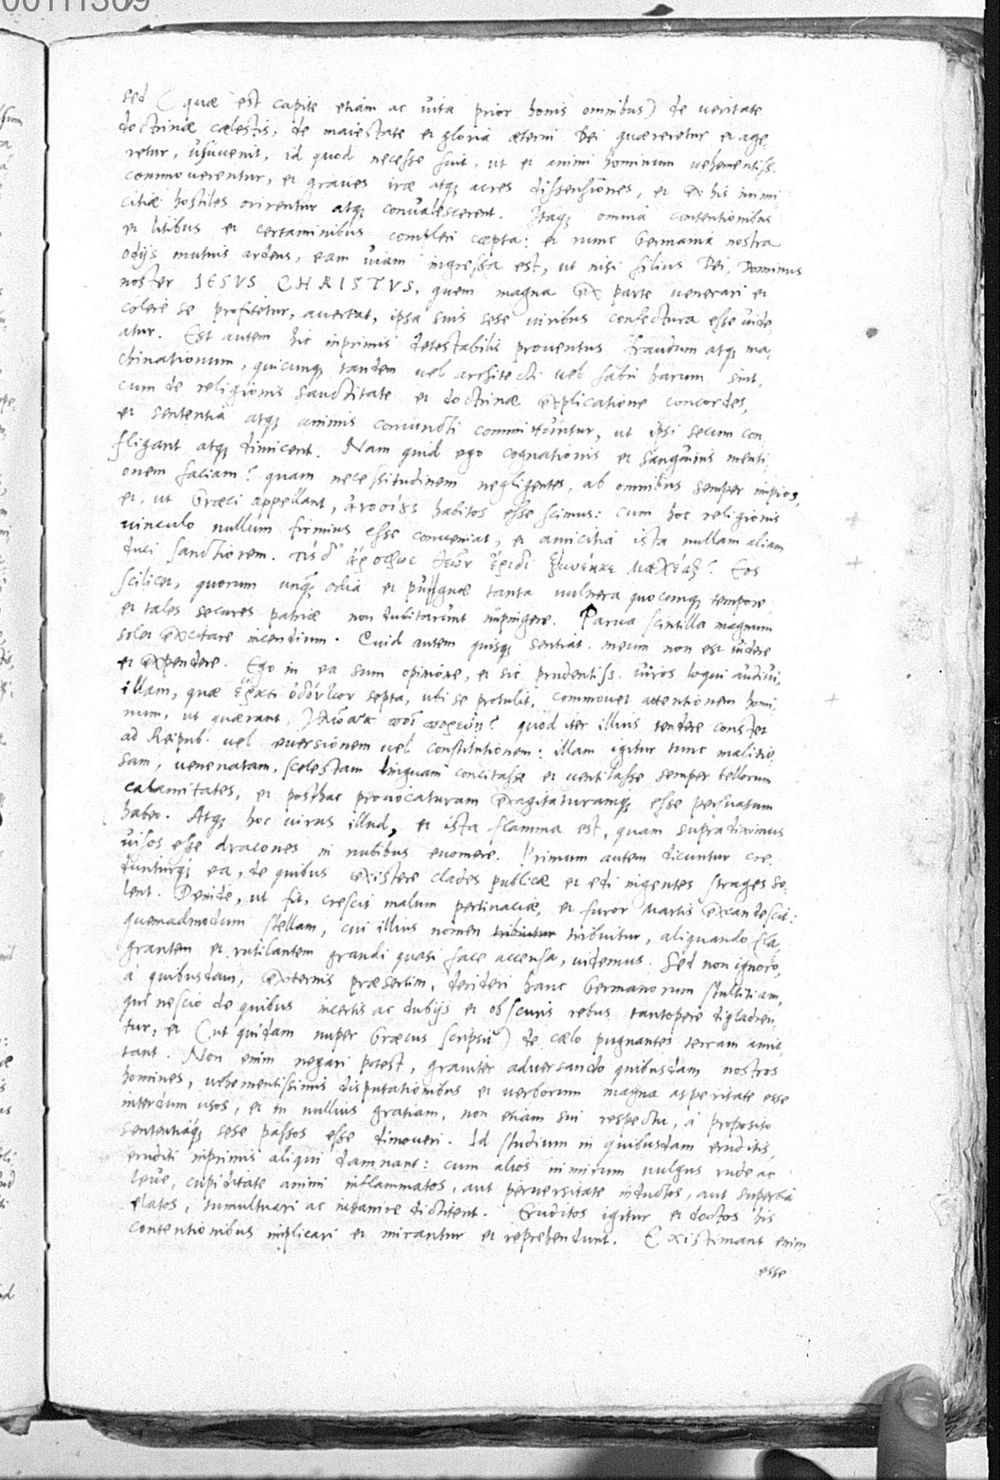 00111309
sed (quæ est capite etiam ac vita prior bonis omnibus) de veritate
doctrinæ cælestis, de maiestate et gloria æterni Dei quæreretur et age,
retur, usuvenit, id quod necesse fuit, ut et animi hominum vehementiss.
commoverentur, et graves iræ atq; acres dissensiones, et ex his inimi
citiæ hostiles orirentur atq; convalescerent. Itaq; omnia contentionibus
et litibus et certaminibus compleri cœpta: et nunc Germania nostra
odijs mutuis ardens, eam viam ingressa est, ut nisi filius Dei, Dominus
noster IESVS CHRISTVS, quem magna ex parte venerari et
colere se profitetur, avertat, ipsa suis sese viribus confectura esse vide
atur. Est autem hic inprimis detestabilis proventus fraudum atq; ma,
chinationum, quicunq; tandem vel architecti vel fabri harum sint,
cum de religionis sanctitate et doctrinæ explicatione concordes,
et sententia atq; animis coniuncti committuntur, ut ipsi secum con
fligant atq; dimicent. Nam quid ego cognationis et sanguinis menti
onem faciam? quam necessitudinem negligentes, ab omnibus semper impios,
et, ut Græci appellant, habitos esse scimus: cum hoc religionis
vinculo nullum firmius esse conveniat, et amicitia ista nullam aliam
duci sanctiorem. τίς δ' ἄρ σφωε θεῶν ἔριδι ξυνέηκε μάχεσθαι? Eos
scilicet, quorum unq; odia et pugnæ tanta vulnera quocunq; tempore,
et tales secures patriæ non dubitarunt impingere. Parva scintilla magnum
solet excitare incendium. Quid autem quisq; sentiat. meum non est videre
et expendere. Ego in ea sum opinione, et sic prudentiss. viros loqui audivi,
illam, quæ ἕρκει ὀδόντων septa, ubi se protulit, commovet attentionem homi
num, ut quærant, quod iter illius tendere constet
ad Reipub. vel eversionem vel constitutionem: illam igitur tunc malitio
sam, venenatam, scelestam linguam concitasse et ventilasse semper bellorum
calamitates, et posthac provocaturam exagitaturamq; esse persuasum
habeo. Atq; hoc virus illud, et ista flamma est, quam supra diximus
visos esse dracones in nubibus evomere. Primum autem dicuntur cre
dunturq; ea, de quibus existere clades publicæ et edi ingentes strages so,
lent. Deinde, ut fit, crescit malum pertinaciæ, et furor Martis excandescit:
quemadmodum stellam, cui illius nomen tribuitur tribuitur, aliquando fla,
grantem et rutilantem grandi quasi face accensa, videmus. Sed non ignoro,
a quibusdam, externis præsertim, derideri hanc Germanorum stultitiam,
qui nescio de quibus incertis ac dubijs et obscuris rebus tantopere digladien
tur, et (ut quidam nuper Græcus scripsit) de cælo pugnantes terram amit
tant. Non enim negari potest, graviter adversando quibusdam nostros
homines, vehementissimis disputationibus et verborum magna asperitate esse
interdum usos, et in nullius gratiam, non etiam sui respectu, a proposito
sententiaq; sese passos esse dimoveri. Id studium in quibusdam eruditis,
eruditi inprimis aliqui damnant: cum alios nimirum vulgus rude ac
leve, cupiditate animi inflammatos, aut perversitate inductos, aut superbia
elatos, tumultuari ac insanire dictitent. Eruditos igitur et doctos his
contentionibus implicari et mirantur et reprehendunt. Existimant enim
esse